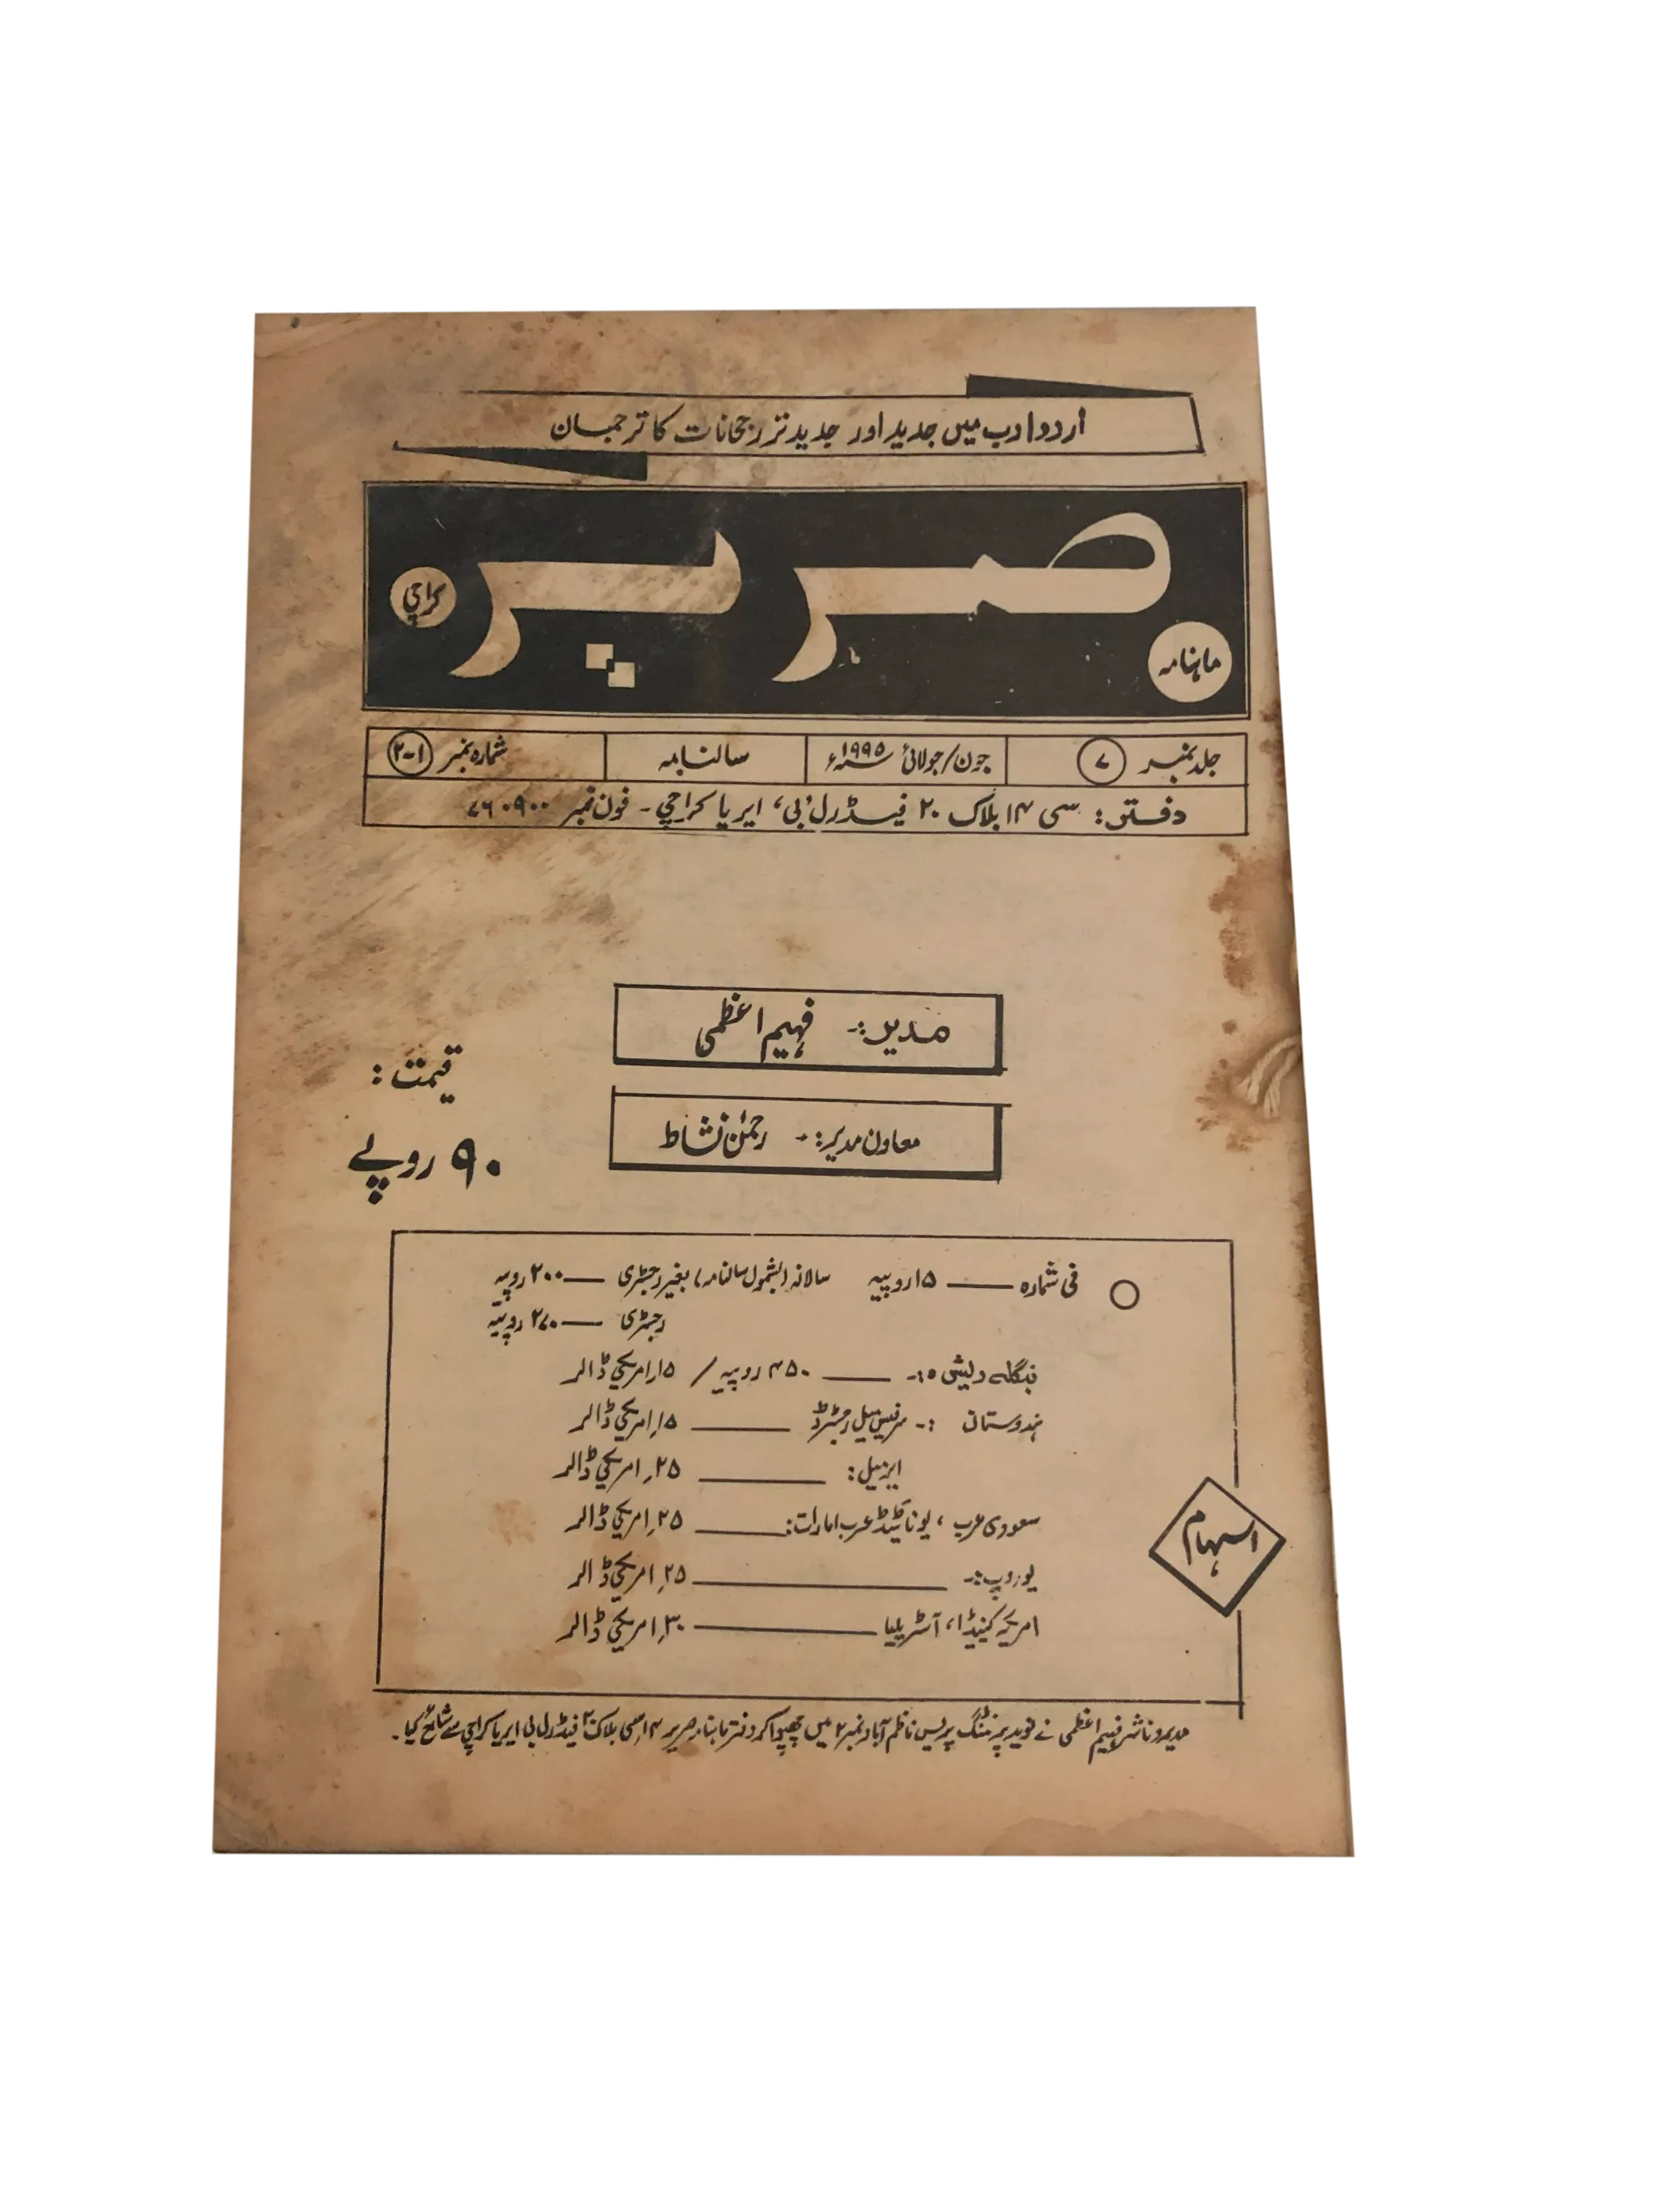 اردو ادب میں جدید اور جدید تر رجحانات کا ترجمان
صریر
کراچی
ماہنامہ
جلد نمبر ۷ جون/جولائی ۱۹۹۵ء سالنامہ شمارہ نمبر ۱-۲
دفتر: سی ۱۴ بلاک ۲۰ فیڈرل 'بی' ایریا کراچی - فون نمبر ۷۶۰۹۰۰
مدیر:- فہیم اعظمی
معاون مدیر:- رحمٰن نشاط
قیمت:
۹۰ روپے
فی شمارہ — ۱۵ روپیہ سالانہ (بشمول سالنامہ) بغیر رجسٹری — ۲۰۰ روپیہ
رجسٹری — ۲۷۰ روپیہ
بنگلہ دیش:- — ۴۵۰ روپیہ / ۱۵ امریکی ڈالر
ہندوستان :- سرفیس میل رجسٹرڈ — ۱۵ امریکی ڈالر
ایرمیل: — ۲۵ امریکی ڈالر
سعودی عرب، یونائیٹڈ عرب امارات: — ۲۵ امریکی ڈالر
یوروپ:- — ۲۵ امریکی ڈالر
امریکہ کینیڈا، آسٹریلیا — ۳۰ امریکی ڈالر
اسہام
مدیر و ناشر فہیم اعظمی نے نوید پرنٹنگ پریس ناظم آباد نمبر ۲ میں چھپوا کر دفتر ماہنامہ صریر ۱۴ سی بلاک ۲۰ فیڈرل بی ایریا کراچی سے شائع کیا۔